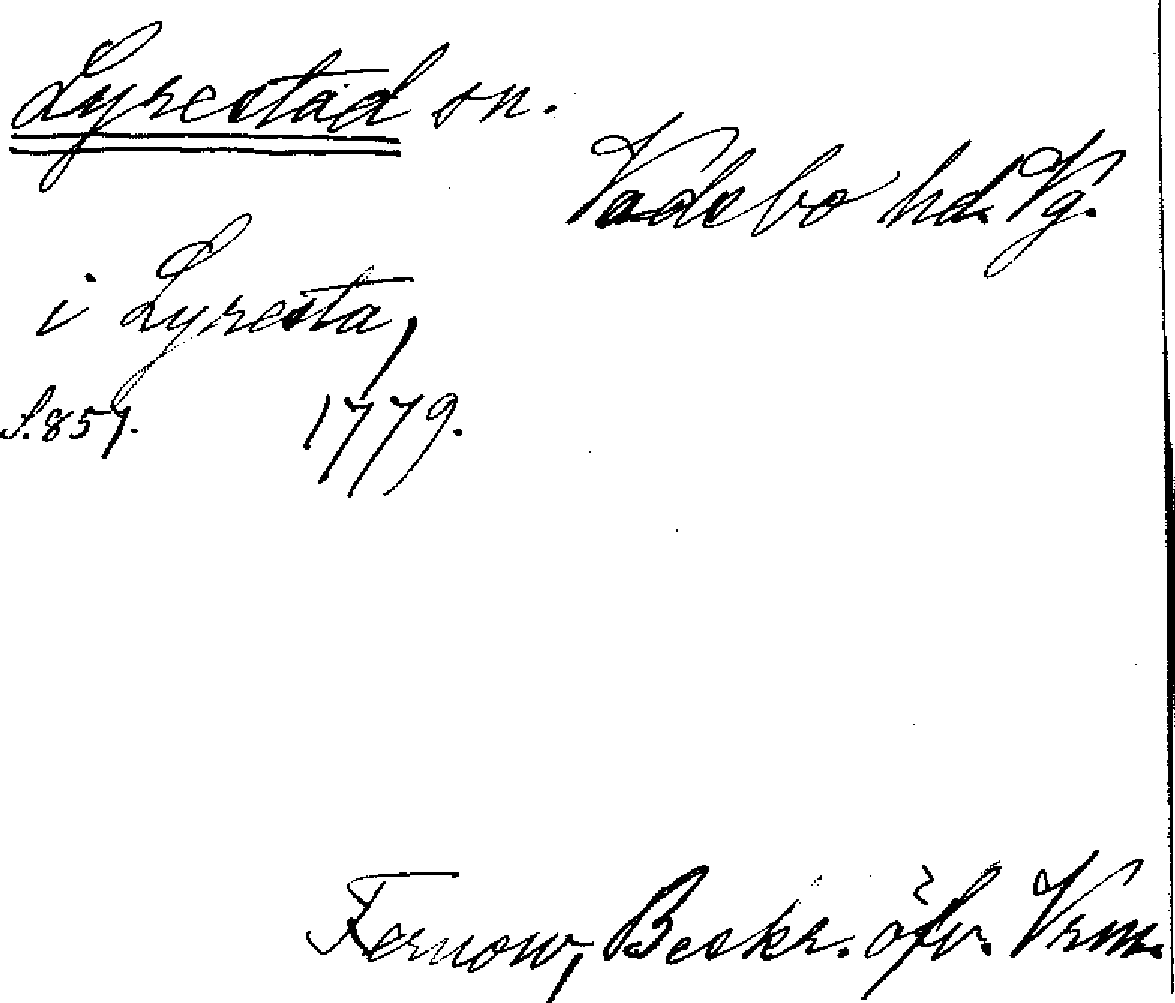 Lyrestad sn.
Vadsbo hd. Vg.
i Lyresta,
S. 857. 1779.
Fernow, Beskr. öfv. Vrm.